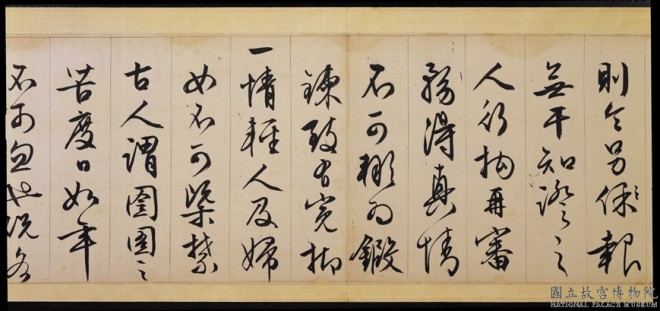 則令召保報
無干知證之
人行拘再審
務得真情
不可輒為鍛
鍊致有冤抑
一情輕人及婦
女不可槩禁
古人謂囹圄之
苦度日如年
不可忽也况各
國立故宮博物院
NATIONAL PALACE MUSEUM